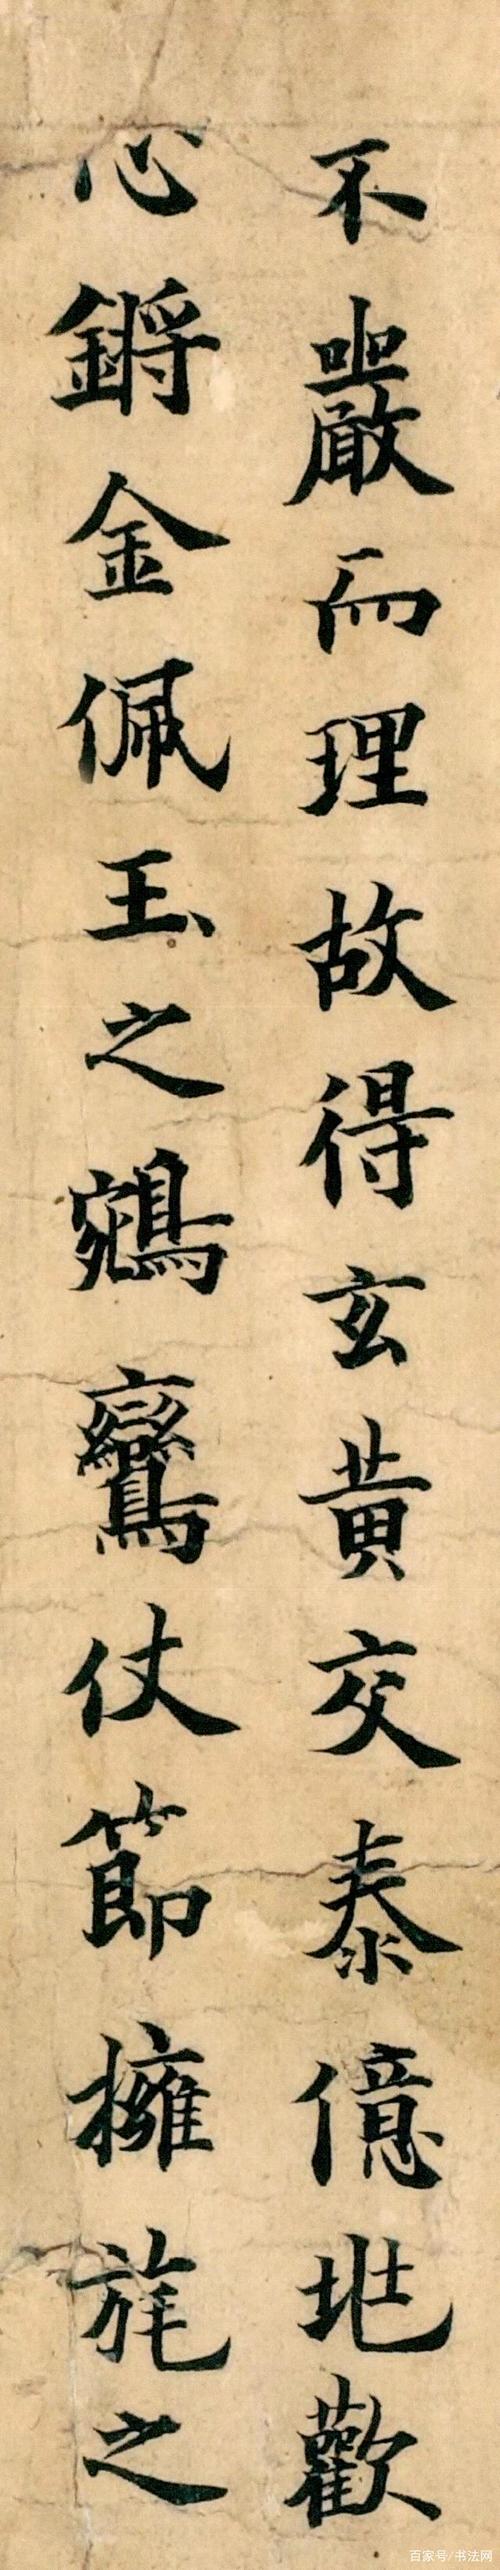 不嚴而理故得玄黄交泰億兆歡
心鏘金佩玉之鵷鸞仗節擁旄之
百家号/书法网